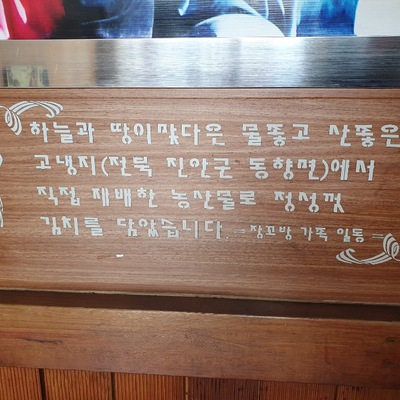 하늘과 땅이맞다은 물좋고 산좋은
고냉지(전북 진안군 동향면)에서
직접 재배한 농산물로 정성껏
김치를 담았습니다. = 장꼬방 가족 일동 =